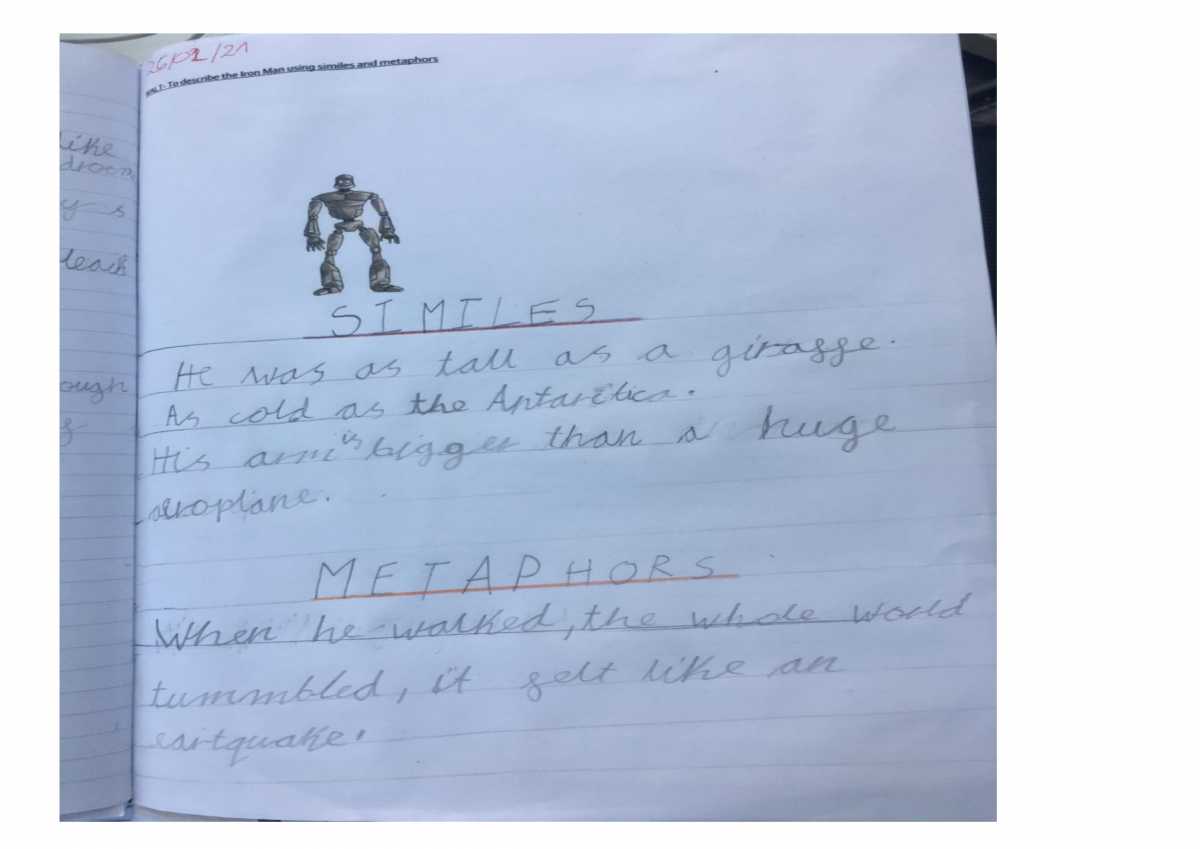 26/01/21
WALT: To describe the Iron Man using similes and metaphors
like
droom
ys
teach
ough
SIMILES
He was as tall as a giraffe.
As cold as the Antarctica.
His arm is bigger than a huge
aeroplane.
METAPHORS
When he walked, the whole world
tummbled, it felt like an
eartquake.